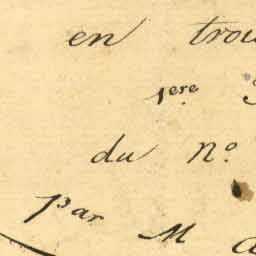 en trou
1ere
du No.
par M